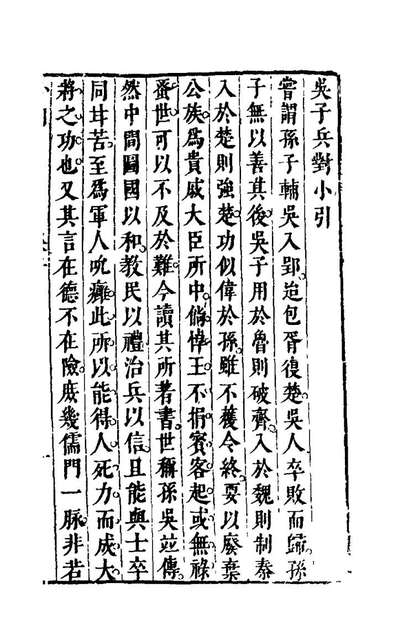 吳子兵對小引
甞謂孫子輔吳入郢迨包胥復楚吳人卒敗而歸孫
子無以善其後吳子用於魯則破齊入於魏則制秦
入於楚則強楚功似偉於孫雖不獲令終要以廢棄
公族爲貴戚大臣所中倘悼王不捐賓客起或無祿
蚤世可以不及於難今讀其所著書世稱孫吳竝傳
然中間圖國以和教民以禮治兵以信且能與士卒
同甘苦至爲軍人吮癰此所以能得人死力而成大
將之功也又其言在德不在險庶幾儒門一脉非若